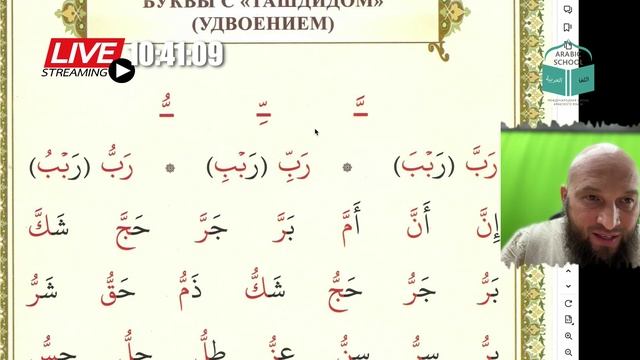 БУКВЫ С «ТАШДИДОМ»
(УДВОЕНИЕМ)
LIVE
STREAMING
10:41:09
ARABIC
SCHOOL
العربية
اللغة
ـَّ ـِّ ـُّ
رَبَّ (رَبْبَ) رَبِّ (رَبْبِ) رَبُّ (رَبْبُ)
إِنَّ أَنَّ أَمَّ بَرَّ جَرَّ حَجَّ شَكَّ
بَرُّ جَرُّ حَجُّ شَكُّ ذَمُّ حَقُّ شَرُّ
بِرُّ سِرُّ سِنُّ عِزُّ ظِلُّ حِلُّ حِسُّ